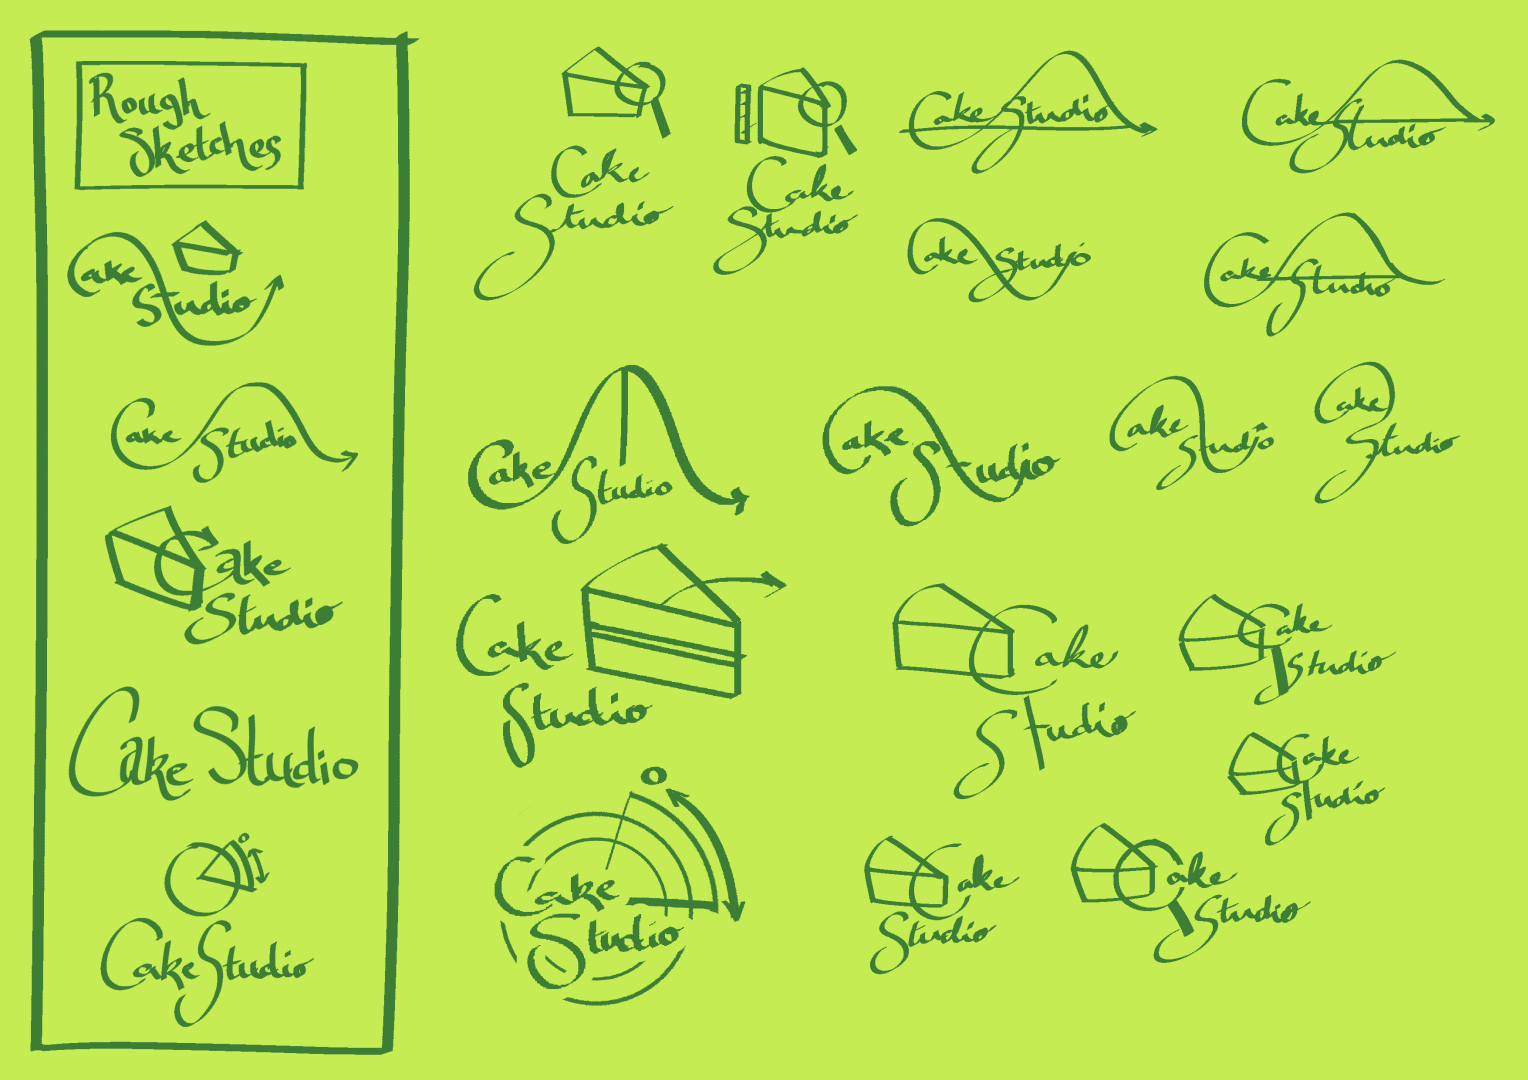 Rough
Sketches
Cake
Studio
Cake
Studio
Cake
Studio
Cake Studio
Cake Studio
Cake
Studio
Cake
Studio
Cake Studio
Cake Studio
Cake Studio
Cake Studio
Cake
Studio
Cake
Studio
Cake
Studio
Cake
Studio
Cake
Studio
Cake
Studio
Cake
Studio
Cake
Studio
Cake
Studio
Cake
Studio
Cake
Studio